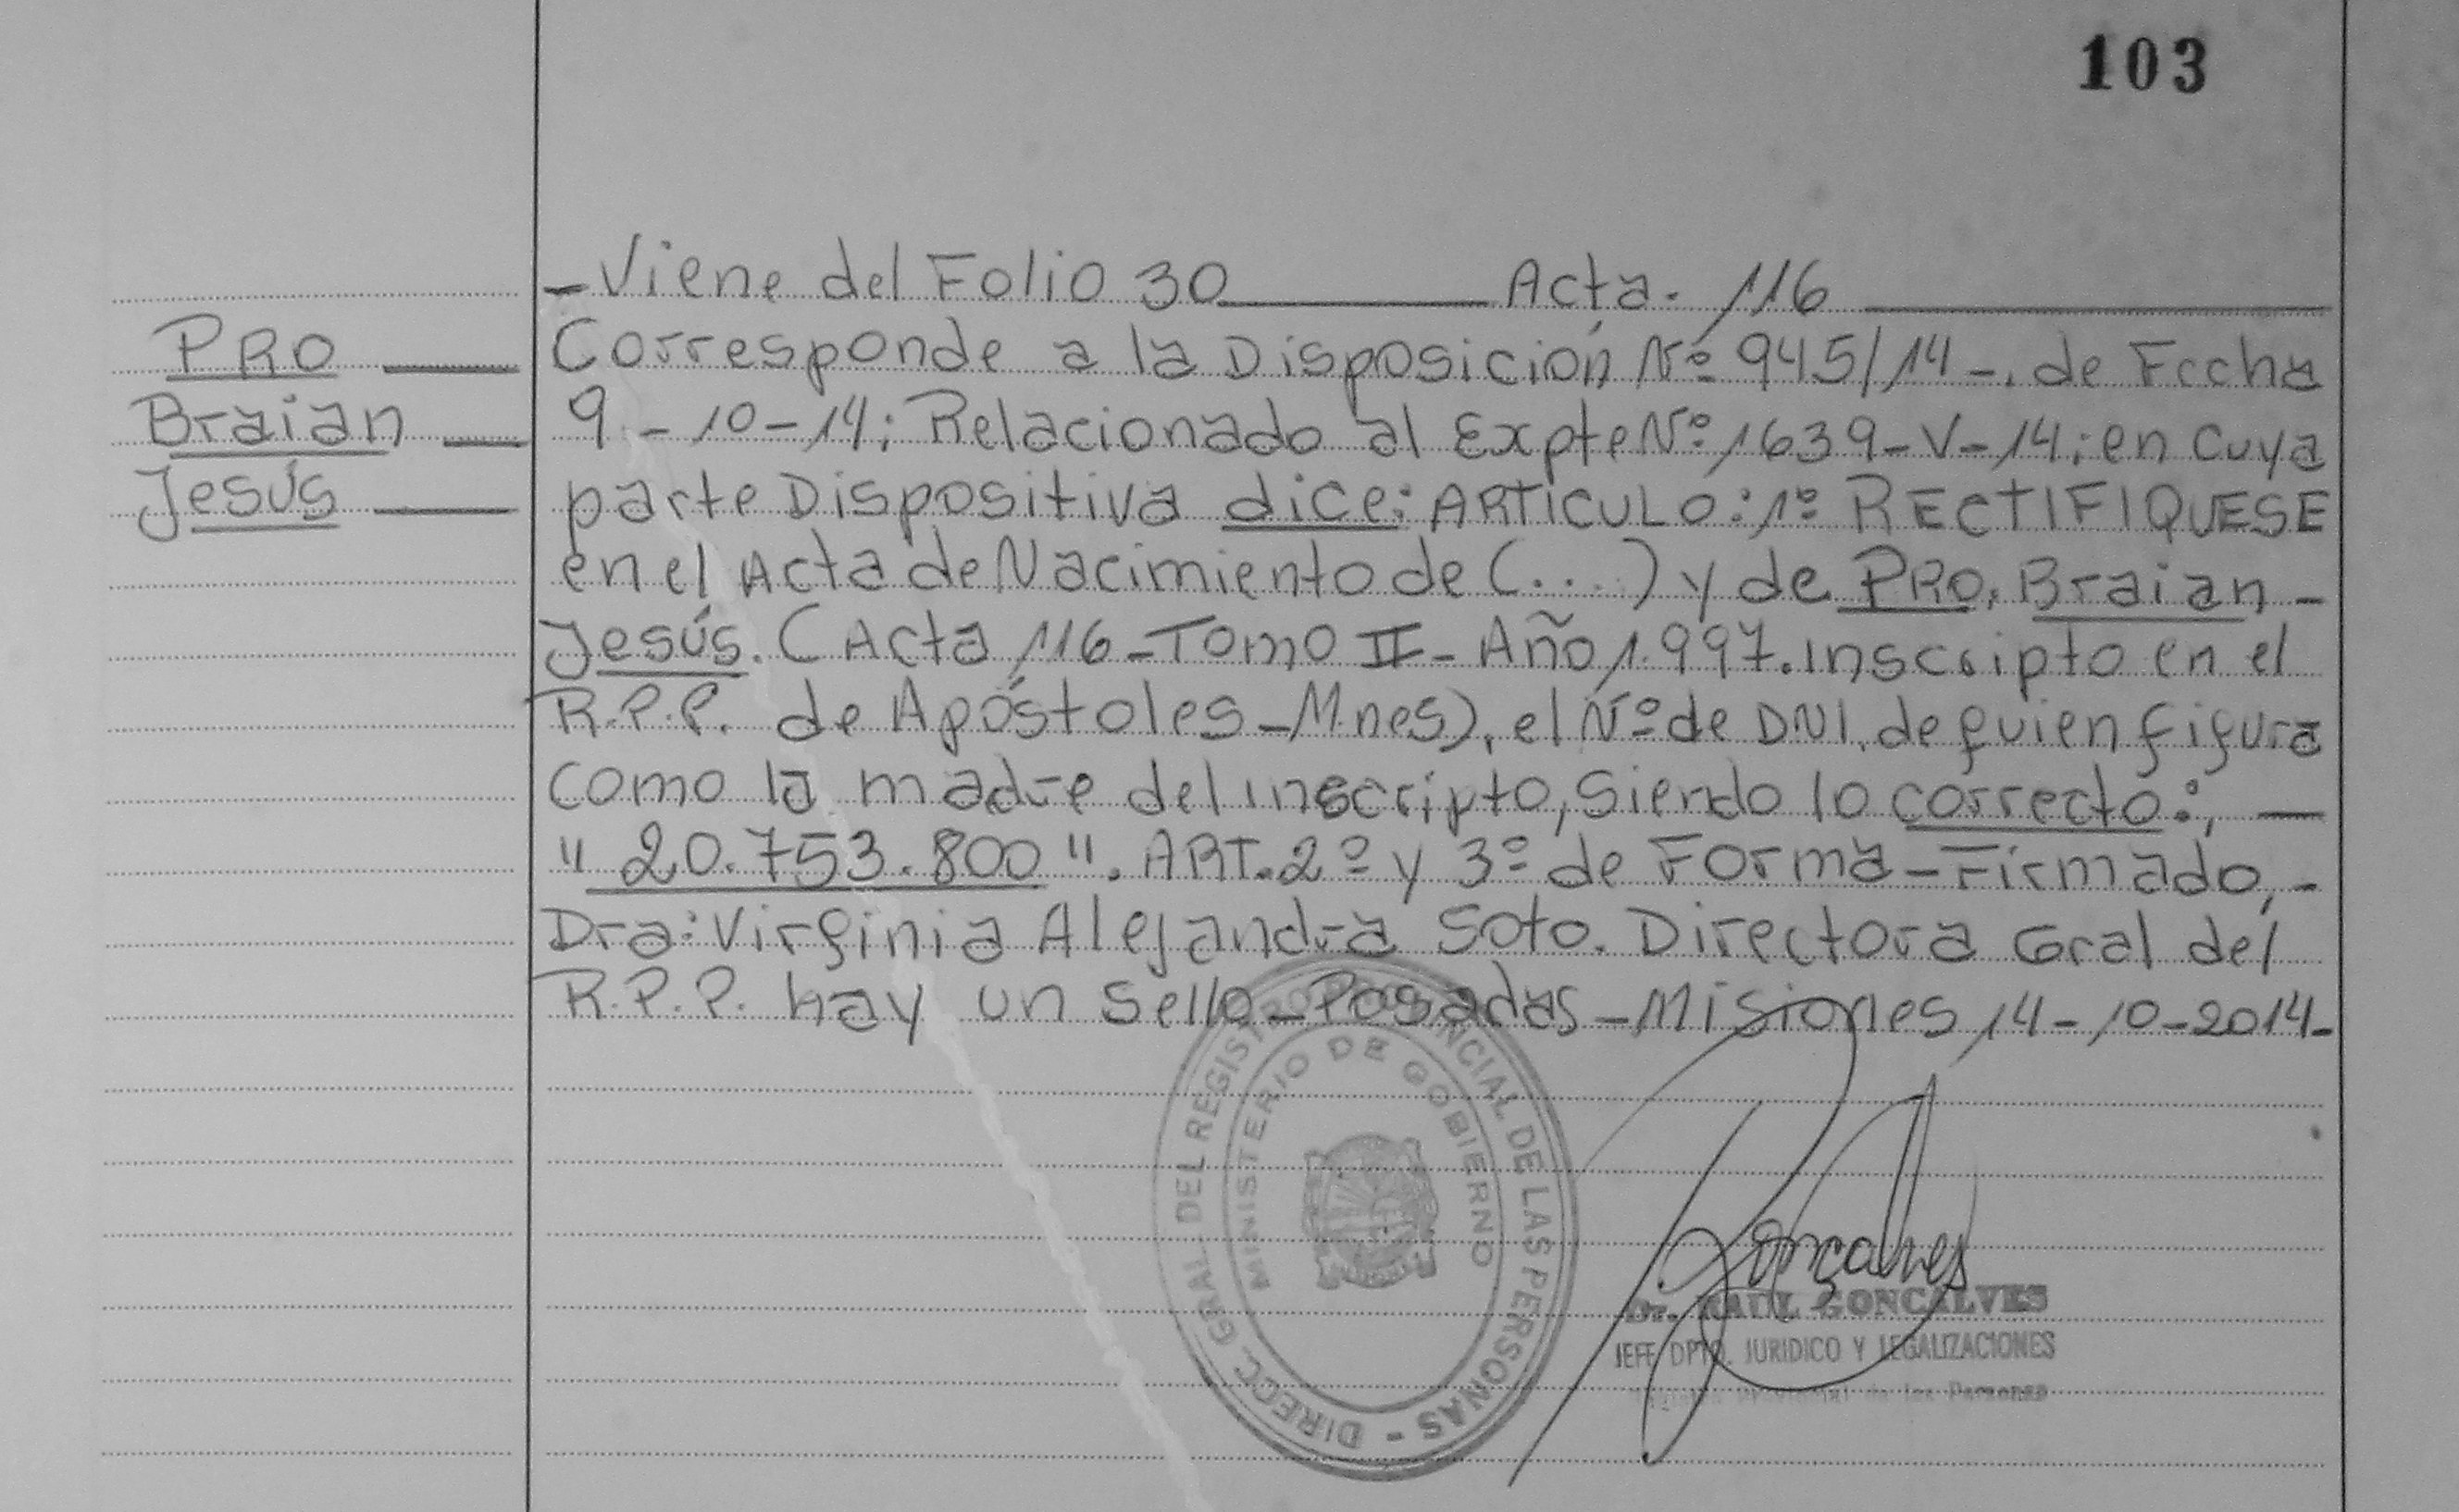 103
-Viene del Folio 30 ____ Acta. 116 ____
PRO __ Corresponde a la Disposición Nº 945/14-. de Fecha
Braian __ 9-10-14; Relacionado al Expte Nº 1639-V-14; en cuya
Jesús __ parte Dispositiva dice: ARTÍCULO: 1º RECTIFIQUESE
en el Acta de Nacimiento de (....) y de PRO, Braian-
Jesús. (Acta 116-Tomo II- Año 1.997. Inscripto en el
R.P.P. de Apóstoles-Mnes), el Nº de DNI, de quien figura
como la madre del inscripto, Siendo lo correcto:, —
" 20.753.800 ". ART. 2º y 3º de Forma-Firmado,-
Dra: Virginia Alejandra Soto. Directora Gral del
R.P.P. hay un Sello-Posadas-Misiones 14-10-2014-
DIRECC. GRAL. DEL REGISTRO PROVINCIAL DE LAS PERSONAS -
MINISTERIO DE GOBIERNO
Gonçalves
Dr. RAUL GONCALVES
JEFE DPTO. JURIDICO Y LEGALIZACIONES
Provincial de las Personas